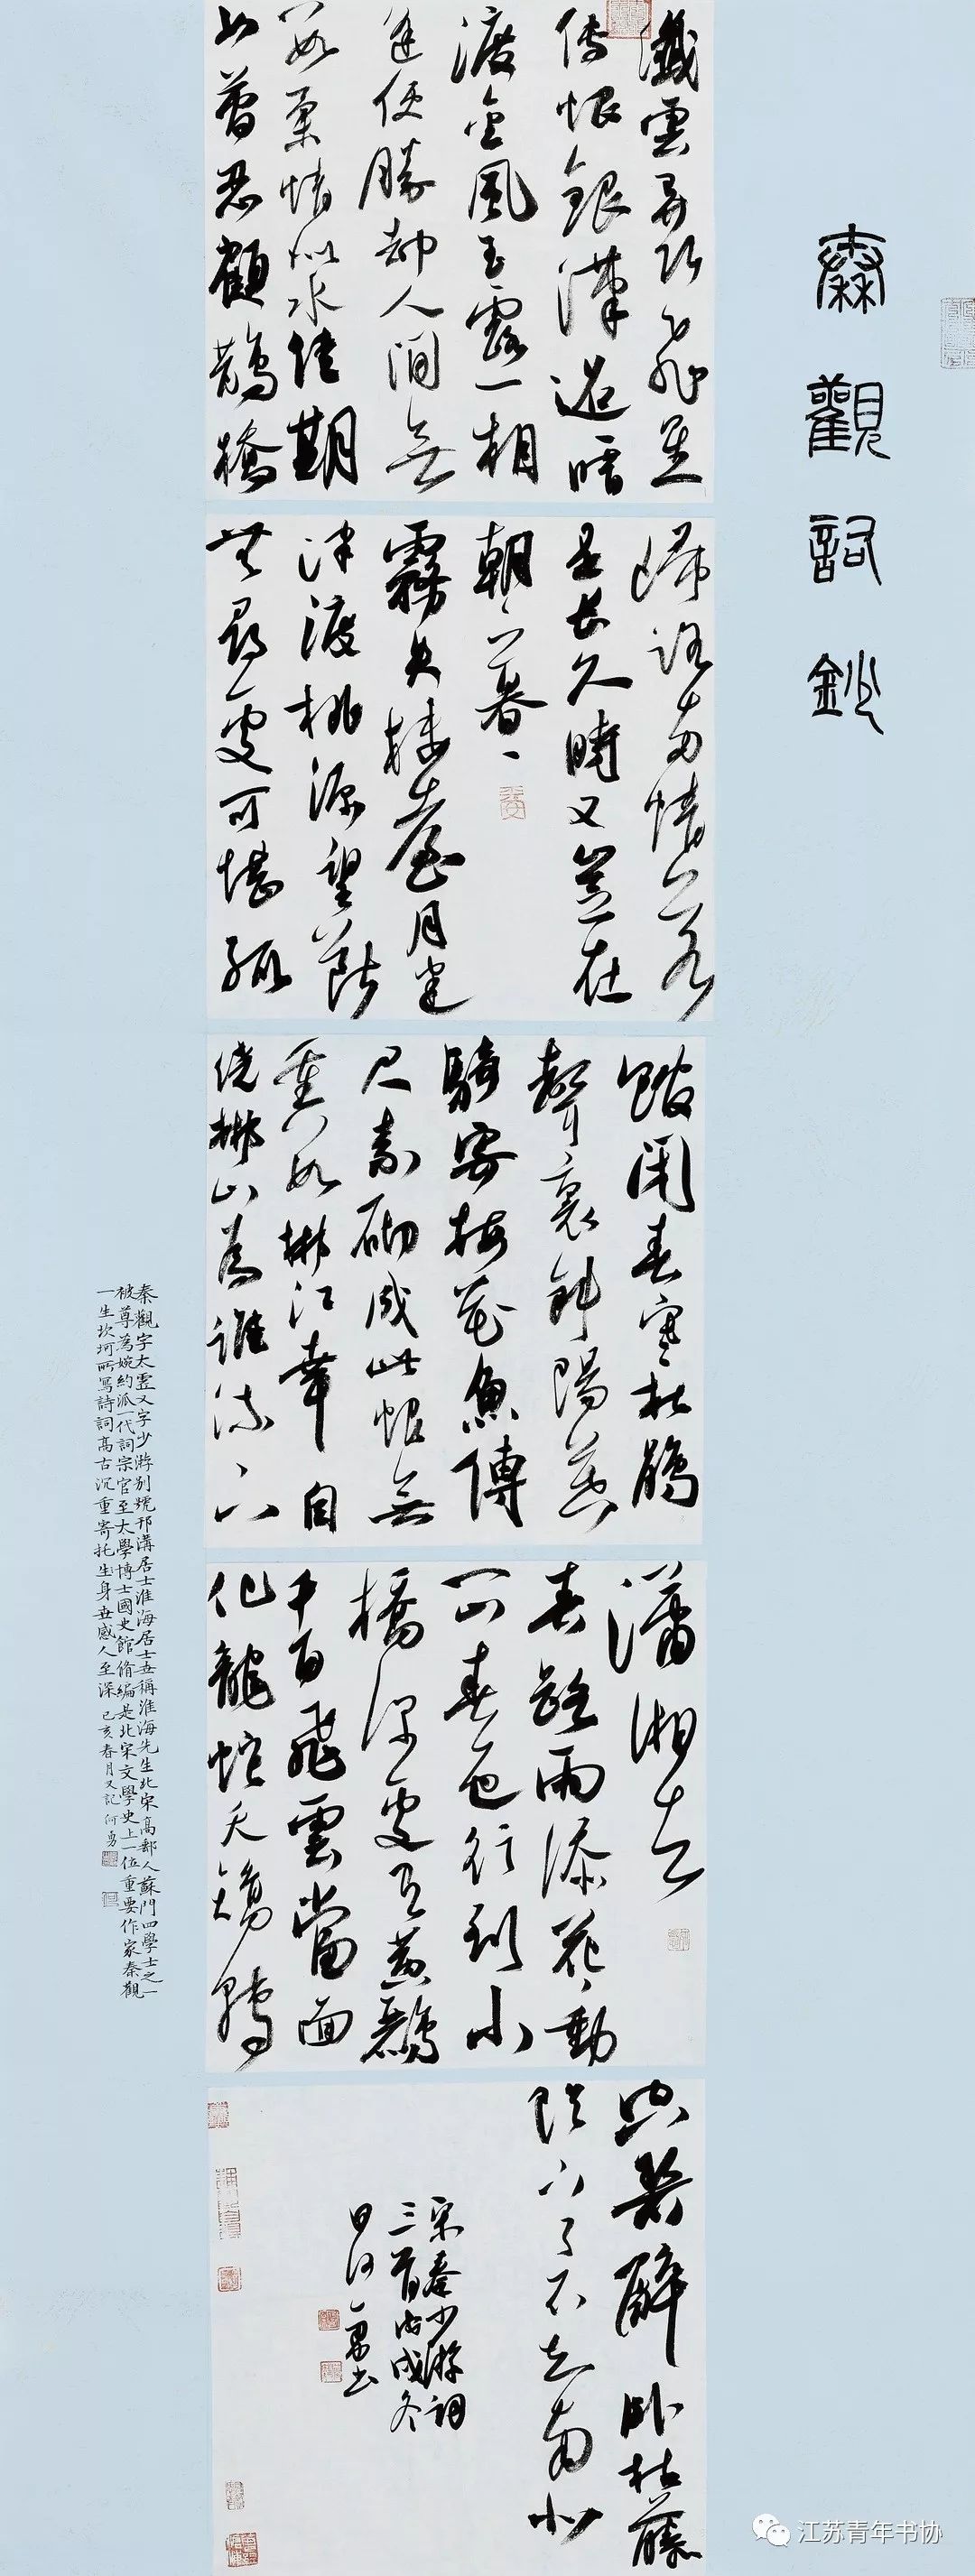 秦觀詞鈔
纖雲弄巧飛星
傳恨銀漢迢迢暗
渡金風玉露一相
逢便勝却人間無
數柔情似水佳期
如夢忍顧鵲橋
歸路兩情若
是長久時又豈在
朝々暮々
霧失樓臺月迷
津渡桃源望斷
無尋處可堪孤
館閉春寒杜鵑
聲裏斜陽暮
驛寄梅花魚傳
尺素砌成此恨無
重數郴江幸自
繞郴山為誰流下
瀟湘去
春路雨添花花動
一山春色行到小
橋深處有黃鸝
千百飛雲當面
化龍蛇夭矯轉
空碧醉卧古藤
陰下了不知南北
宋秦少游詞
三首戊戌冬
日何勇書
秦觀字太虛又字少游別號邗溝居士淮海居士世稱淮海先生北宋高郵人蘇門四學士之一
被尊為婉約派一代詞宗官至太學博士國史館脩編是北宋文學史上一位重要作家秦觀
一生坎坷所寫詩詞高古沉重寄托生身世感人至深己亥春月又記何勇
江苏青年书协